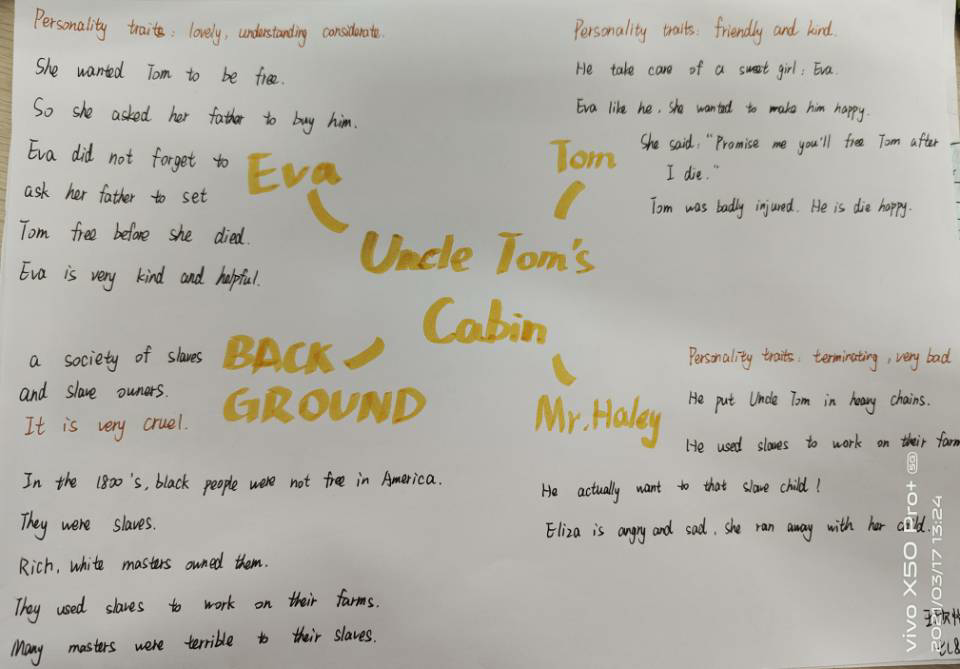 Personality traits: lovely, understanding considerate.
She wanted Tom to be free.
So she asked her father to buy him.
Eva did not forget to
ask her father to set
Tom free before she died.
Eva is very kind and helpful.
Eva
Personality traits: friendly and kind.
He take care of a sweet girl: Eva.
Eva like he. She wanted to make him happy.
She said: "Promise me you'll free Tom after
I die."
Tom was badly injured. He is die happy.
Tom
Uncle Tom's
Cabin
BACK
GROUND
a society of slaves
and slave owners.
It is very cruel.
In the 1800's, black people were not free in America.
They were slaves.
Rich, white masters owned them.
They used slaves to work on their farms.
Many masters were terrible to their slaves.
Mr. Haley
Personality traits: terminating, very bad
He put Uncle Tom in heavy chains.
He used slaves to work on their farm
He actually want to that slave child!
Eliza is angry and sad. she ran away with her child.
vivo X50 Pro+ 5G
2021/03/17 13:24